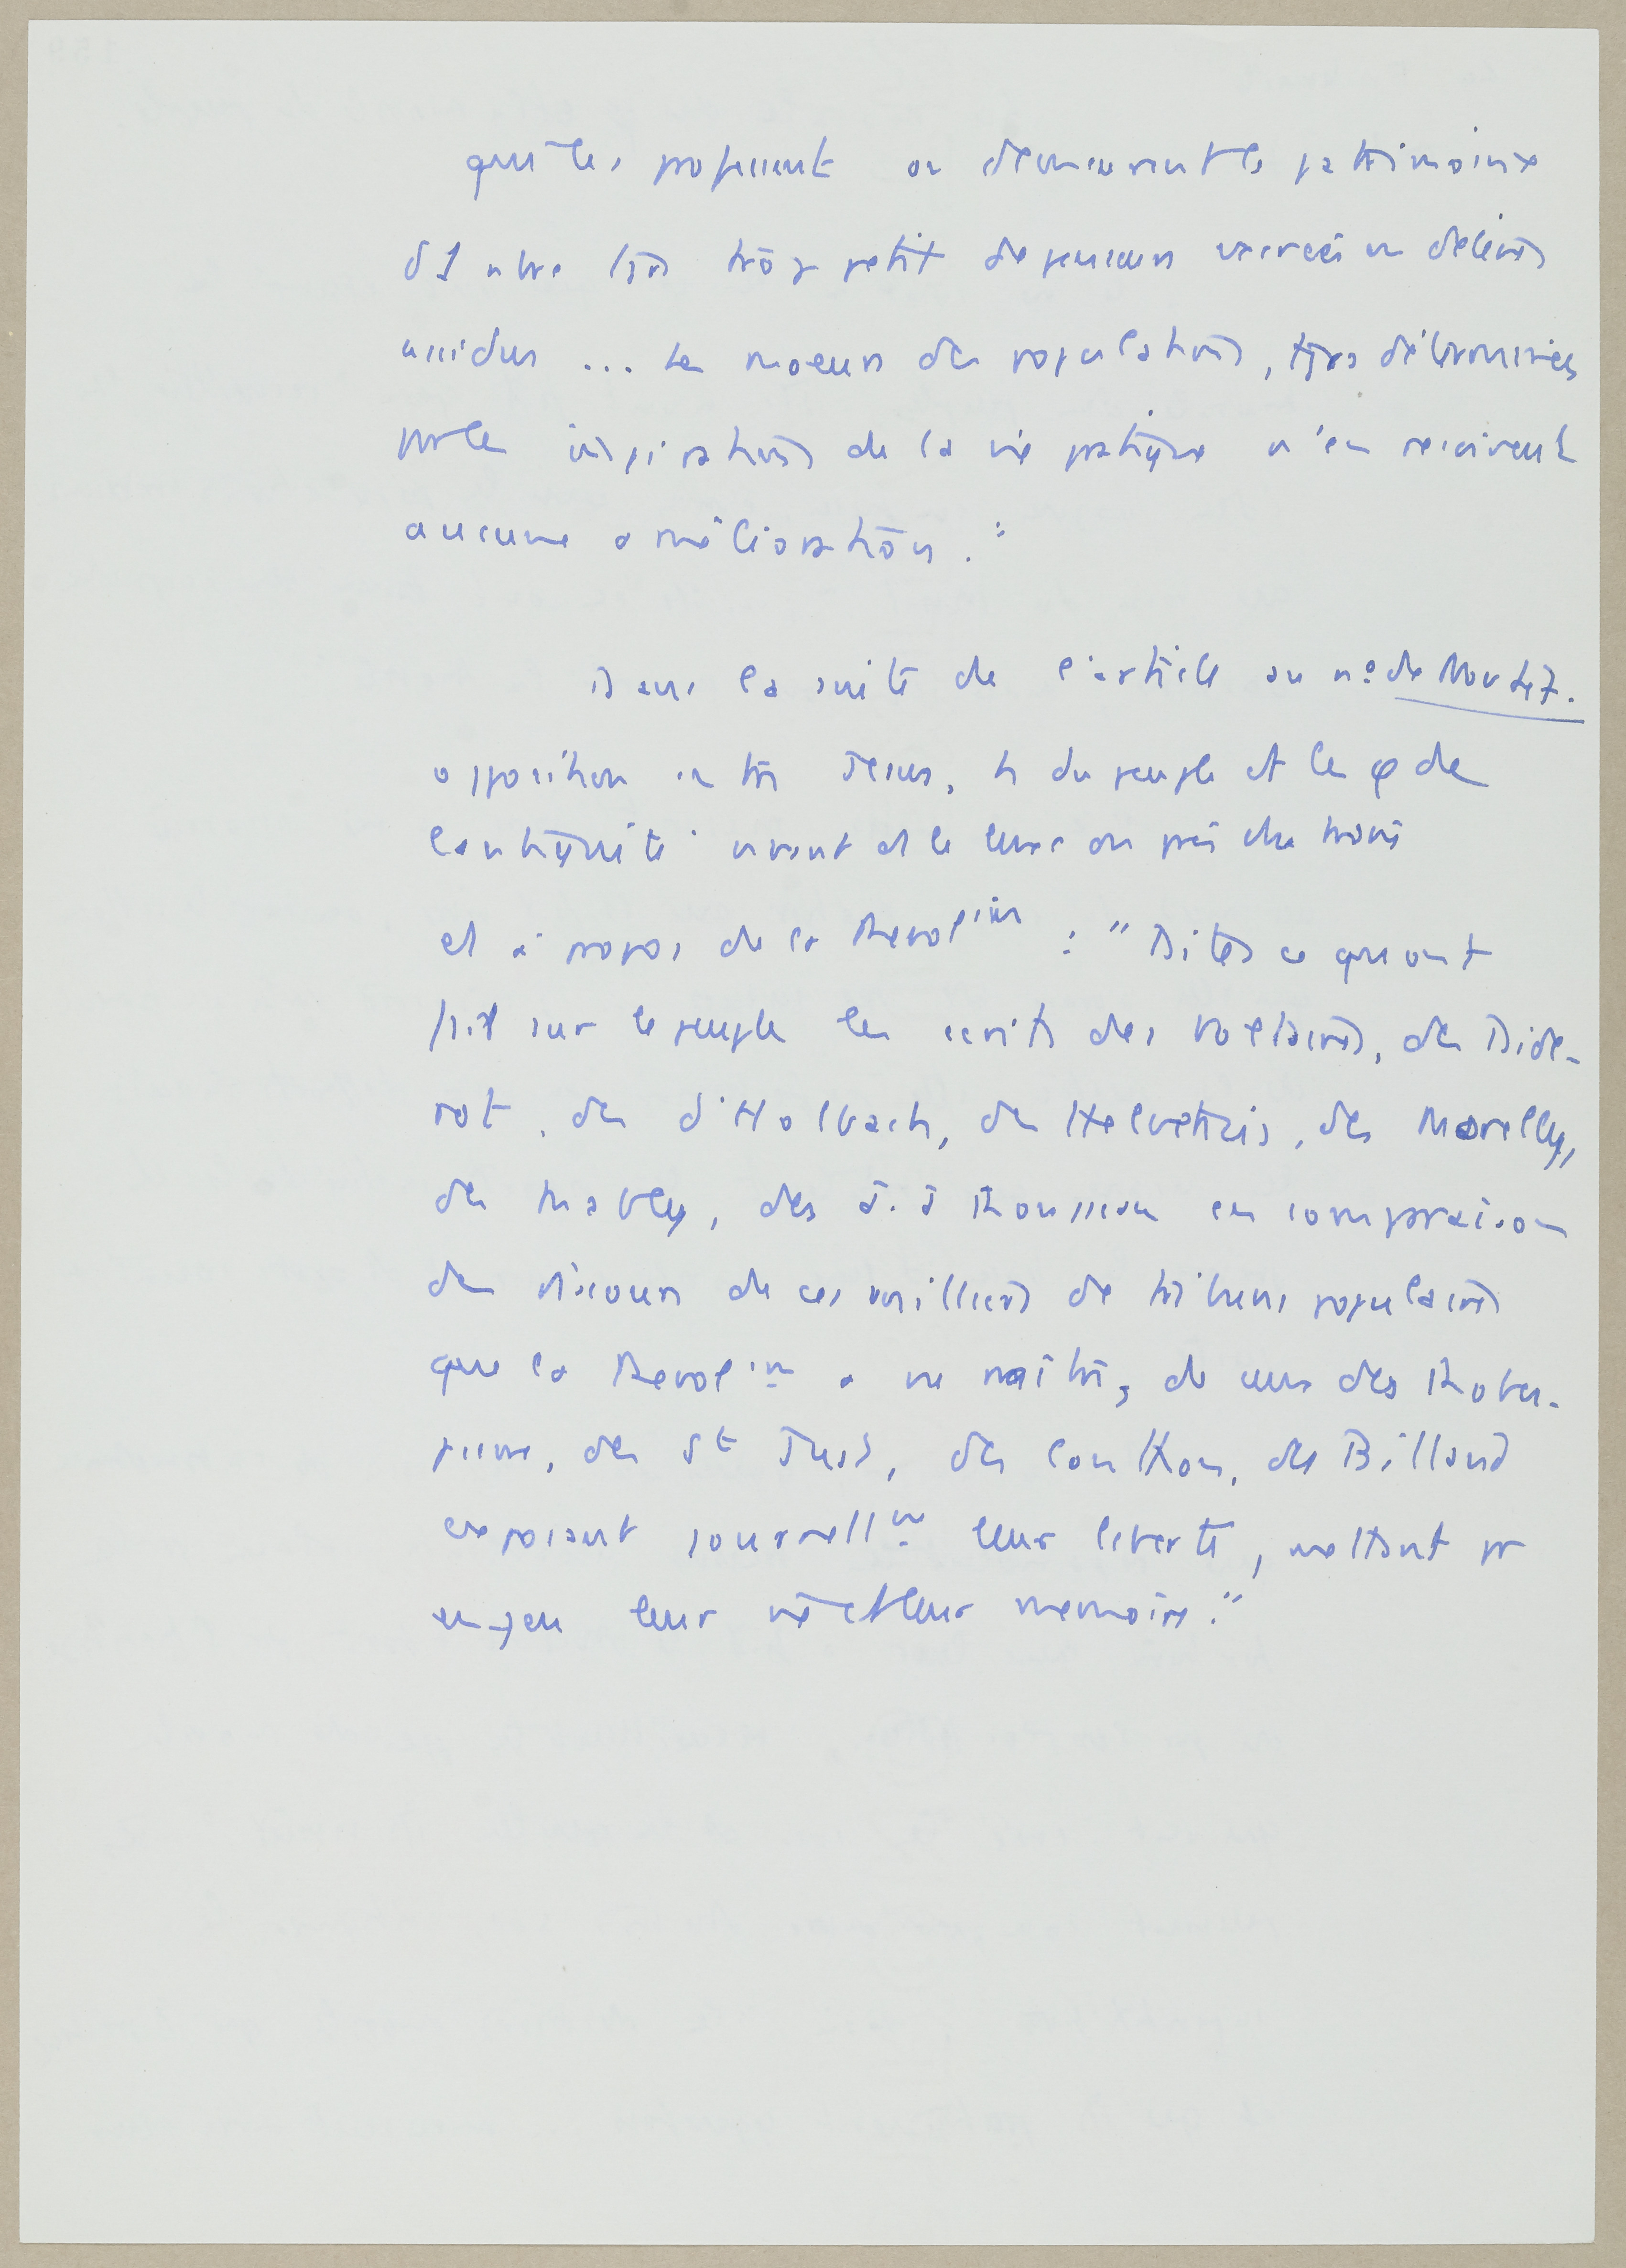 qui les professent ou demeurent le patrimoine
d'1 nbre trop petit de penseurs exercés ou de lecteurs
assidus ... Les moeurs des populations, tjrs déterminées
par les inspirations de la vie pratique n'en reçoivent
aucune amélioration."
Dans la suite de l'article au n° de Nov 47.
opposition entre Jesus, h du peuple et les φ de
l'antiquité
et à propos de la Revol ion : "Dites ce que ont
fait sur le peuple les ecrits des Voltaires, des Dide-
rot, des d'Holbach, des Helvetius, des Morelly,
des Mably, des J. J Rousseau en comparaison
des discours de ces milliers de tribuns populaires
que la Revol on a vu naître, de ceux des Robes-
pierre, des St Just, des Couthon, des Billaud
exposant journell mt leur liberté, mettant pr
enjeu leur vie et leur memoire."